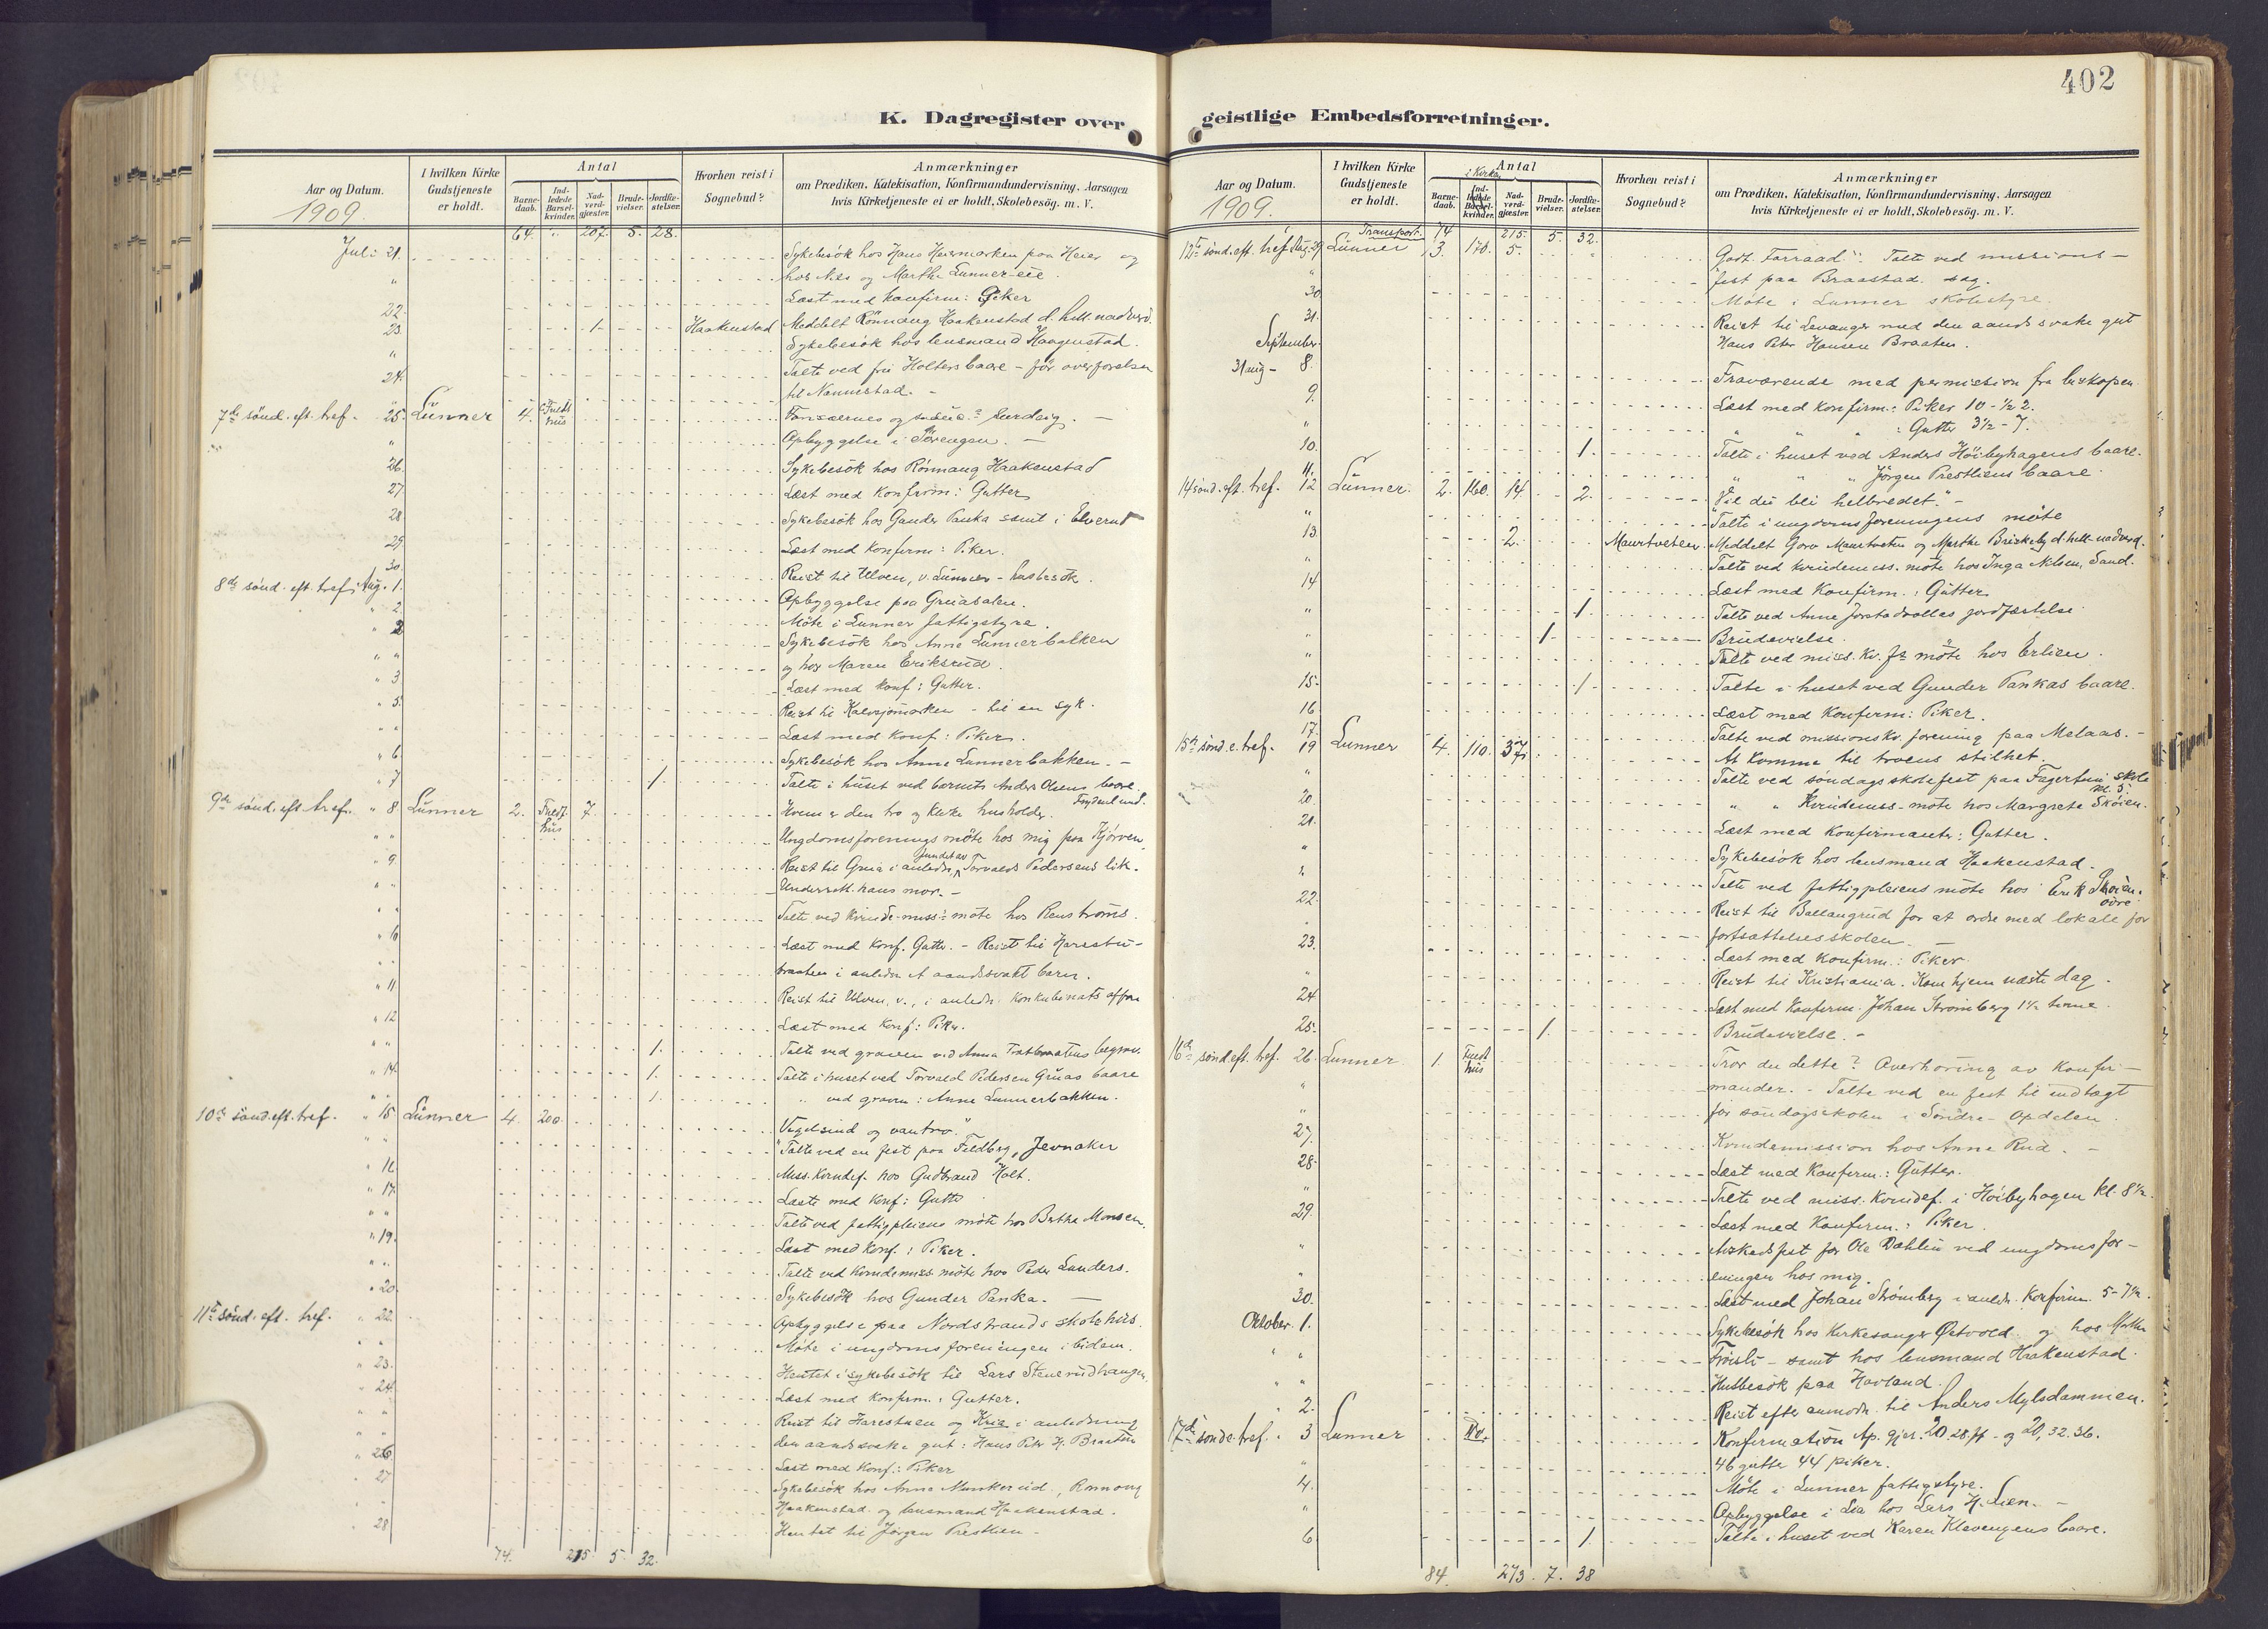 402
K. Dagregister over geistlige Embedsforretninger.
Aar og Datum.
1909.
I hvilken Kirke Gudstjeneste er holdt.
Antal
Barne-daab.
Ind-ledede Barsel-kvinder.
Nad-verd-gjæster.
Brude-vielser.
Jordfæ-stelser.
Hvorhen reist i Sognebud?
Anmærkninger
om Prædiken, Katekisation, Konfirmandundervisning, Aarsagen
hvis Kirketjeneste ei er holdt, Skolebesög. m. V.
64. " 207. 5. 28.
Juli 21. Sykebesök hos Hans Heiermarken paa Heier og
hos Nils og Marthe Lunner-eie.
" Læst med konfirm: Piker
22.
23. 1 Haakenstad Meddelt Rönnaug Haakenstad d. hell. nadverd.
Sykebesök hos lensmand Haagenstad.
" Talte ved fru Holters baare - för overförelsen
24. til Nannestad. -
7de sönd. eft. tref. 25. Lunner 4. Fuldt hus
" Opbyggelse i
26. Sykebesök hos Rönnaug Haakenstad
27. Læst med Konfirm: Gutter
28. Sykebesök hos Gunder Panka samt i Elverud
29. Læst med Konfirm: Piker.
30. Reist til Ulven, v. Lunner - husbesök.
8de sönd. eft. tref. Aug. 1. Opbyggelse paa Gruasalen.
" 2. Möte i Lunner fattigstyre.
" 2 Sykebesök hos Anne Lunnerbakken
" " og hos Maren Eriksrud.
" 3 Læst med konf: Gutter.
" 5. Reist til Kalvsjömarken - til en syk.
" " Læst med Konf: Piker.
" 6 Sykebesök hos Anne Lunnerbakken. -
" 7 1. Talte i huset ved barnets Anders Olsens baare.
9de sönd. eft. tref. " 8 Lunner 2. Fuldt hus 7. Hvem er den tro og kloke husholder.
" " Ungdomsforenings möte hos mig paa Kjörven.
" 9. Reist til Grua i anledn. fundet av Torvald Pedersens lik.
" " Underrett. hans mor. -
" " Talte ved kvinde-miss: möte hos Renströms.
" 10 Læst med Konf. Gutter. - Reist til Harestu-
" " braaten i anledn. et aandssvakt barn.
" 11. Reist til Ulven, v., i anledn. konkubinats affære
" 12 Læst med Konf: Piker.
" " 1. Talte ved graven ved Anna begrav.
" 14. 1. Talte i huset ved Torvald Pedersen Gruas baare
" " 1. " ved graven: Anne Lunnerbakken.
10de sönd. eft. tref. " 15 Lunner 4. 200. Vegelsind og vantro."
" " Talte ved en fest paa Feldberg, Jevnaker
" 16. Miss. Kvindef. hos Gudbrand Holt.
" 17. Læste med konf: Gutter
" " Talte ved fattigpleiens möte hos Berthe Monsen.
" 19. Læst med Konf: Piker.
" " Talte ved Kvindemiss. möte hos Peder Lunders.
" 20. Sykebesök hos Gunder Panka. -
11te sönd. eft. tref. " 22. Opbyggelse paa Nordstrands skolehus.
" " Möte i ungdomsforeningen ibidem.
" 23. Hentet i sykebesök til Lars Stenerudhaugen.
" 24. Læst med konfirm: Gutter.
" " Reist til Harestuen og Grua i anledning
" " den aandssvake gut: Hans Peter H. Braaten
" 26 Læst med Konf: Piker
" 27 Sykebesök hos Anne Munkerud, Rönnaug
" Haakenstad og lensmand Haakenstad.
" 28 Hentet til Jörgen Prestlien -
74. 215 5 32.
Aar og Datum.
1909.
I hvilken Kirke Gudstjeneste er holdt.
i Kirken Antal
Barne-daab.
Ind-ledede Barsel-kvinder.
Nad-verd-gjæster.
Brude-vielser.
Jordfæ-stelser.
Hvorhen reist i Sognebud?
Anmærkninger
om Prædiken, Katekisation, Konfirmandundervisning, Aarsagen
hvis Kirketjeneste ei er holdt, Skolebesög. m. V.
Transport. 74 215. 5. 32.
12te sönd. eft. tref. Aug. 29 Lunner 3. 170. 5. Godt Forraad". Talte ved missions-
" fest paa Braastad sag.
30. Möte i Lunner skolestyre.
31. Reist til Levanger med den aandssvake gut
September. Hans Peter Hansen Braaten.
31 aug - 8. Fraværende med permission fra biskopen
9. Læst med konfirm: Piker 10-1/2 2.
" " " " : Gutter 3 1/2 - 7.
10. 1. Talte i huset ved Anders Höibyhagens baare.
11. " " " Jörgen Prestliens baare.
14 sönd. eft. tref. 12 Lunner. 2. 160. 14. 2. Vil du bli helbredet." -
" Talte i ungdomsforeningens möte
13. 2. Maurtveten Meddelt Goro Maurtveten og Marthe Briskeby d. hell. nadverd.
" Talte ved kvindemiss. möte hos Inga Nilsen, Sand.
14 Læst med Konfirm.: Gutter
" 1. Talte ved Anne jordfæstelse
" 1. Brudevielse.
" Talte ved miss. Kv. fs möte hos Erlien.
15. 1. Talte i huset ved Gunder Pankas baare.
16. Læst med Konfirm: Piker.
17. Talte ved missionskv. forening paa Melaas. -
15de sönd. e. tref. 19 Lunner 4. 110. 37. At komme til troens stilhet.
" Talte ved söndagsskolefest paa Fagertun skole
20. " " Kvindemiss-möte hos Margrete Sköien.
21. Læst med Konfirmanter: Gutter.
" Sykebesök hos lensmand Haakenstad.
" Talte ved fattigpleiens möte hos Erik Sköien. övre
22. Reist til Ballangrud for at ordne med lokale for
" fortsættelsesskolen. -
23. Læst med konfirm.: Piker
" Reist til Kristiania. Kom hjem næste dag.
24. Læst med Konfirm. Johan Strömberg 1 1/2 time.
25. 1. Brudevielse. -
16de sönd. eft. tref. 26. Lunner 1. Fuldt hus Tror du dette? Overhöring av Konfir-
" mander. - Talte ved en fest til indtægt
" for söndagsskolen i Söndre-Opdalen.
27. Kvindemission hos Anne Rud. -
28. Læst med Konfirm.: Gutter.
" Talte ved miss. Kvindef. i Höibyhagen kl. 8 1/2.
29. Læst med Konfirm.: Piker.
" Avskedsfest for Ole Dæhlin ved ungdomsfor-
" eningen hos mig.
30. Læst med Johan Strömberg i anledn. Konfirm. 5-7 1/2.
Oktober 1. Sykebesök hos Kirkesanger Østvold og hos Marthe
" " Fröisli - samt hos lensmand Haakenstad.
" " Husbesök paa Hovland.
" 2. Reist efter anmodn. til Anders Mylsdammen.
17de sönd e. tref. " 3 Lunner Konfirmation Ap. gjer. 20, 28 ff - og 20, 32. 36.
" 46 gutter 44 piker.
4. Möte i Lunner fattigstyre.
" Opbyggelse i Lia hos Lars H. Lien. -
6. 1. Talte i huset ved Karen Klevengens baare.
84. 273. 7. 38